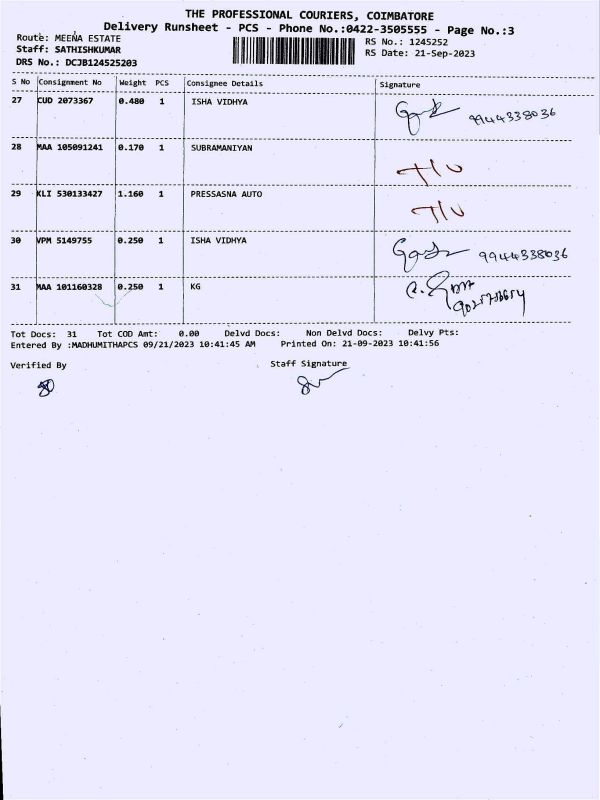 THE PROFESSIONAL COURIERS, COIMBATORE
Delivery Runsheet - PCS - Phone No.:0422-3505555 - Page No.:3
Route: MEENA ESTATE
RS No.: 1245252
Staff: SATHISHKUMAR
RS Date: 21-Sep-2023
DRS No.: DCJB124525203
S No Consignment No Weight PCS Consignee Details Signature
27 CUD 2073367 0.480 1 ISHA VIDHYA 9944338036
28 MAA 105091241 0.170 1 SUBRAMANIYAN
29 KLI 530133427 1.160 1 PRESSASNA AUTO
30 VPM 5149755 0.250 1 ISHA VIDHYA 9944338036
31 MAA 101160328 0.250 1 KG
Tot Docs: 31 Tot COD Amt: 0.00 Delvd Docs: Non Delvd Docs: Delvy Pts:
Entered By :MADHUMITHAPCS 09/21/2023 10:41:45 AM Printed On: 21-09-2023 10:41:56
Verified By Staff Signature